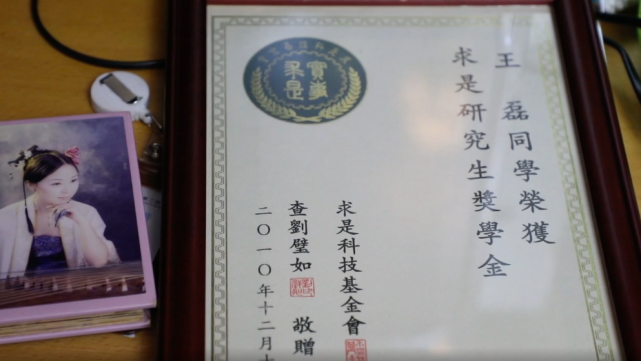 王 磊同學榮獲
求是研究生獎學金
求是科技基金會
查劉璧如 敬贈
二〇一〇年十二月